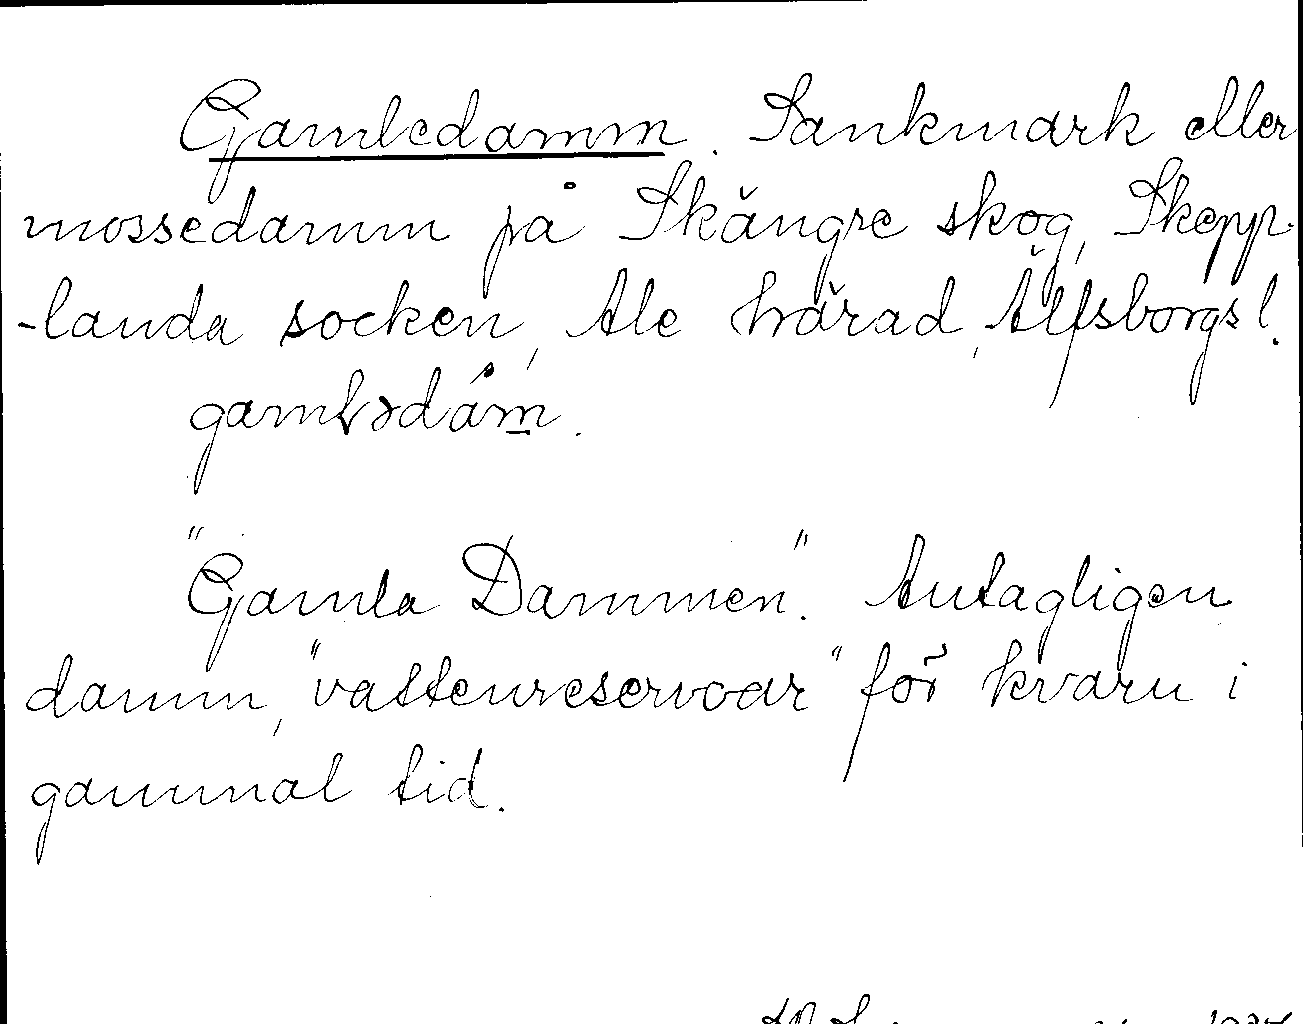 Gamledamm. Sankmark eller
mossedamm på Skängre skog, Skepp-
-landa socken, Ale härad, Älfsborgs l.
gamlədåm.
"Gamla Dammen". Antagligen
damm, "vattenreservoar" för kvarn i
gammal tid.